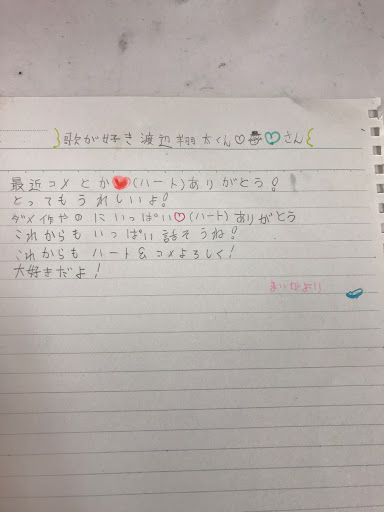 歌が好き渡辺翔太くん♡☃♡さん
最近コメとか♥(ハート)ありがとう!
とってもうれしいよ!
ダメ作やのにいっぱい♡(ハート)ありがとう
これからもいっぱい話そうね!
これからもハート&コメよろしく!
大好きだよ!
より